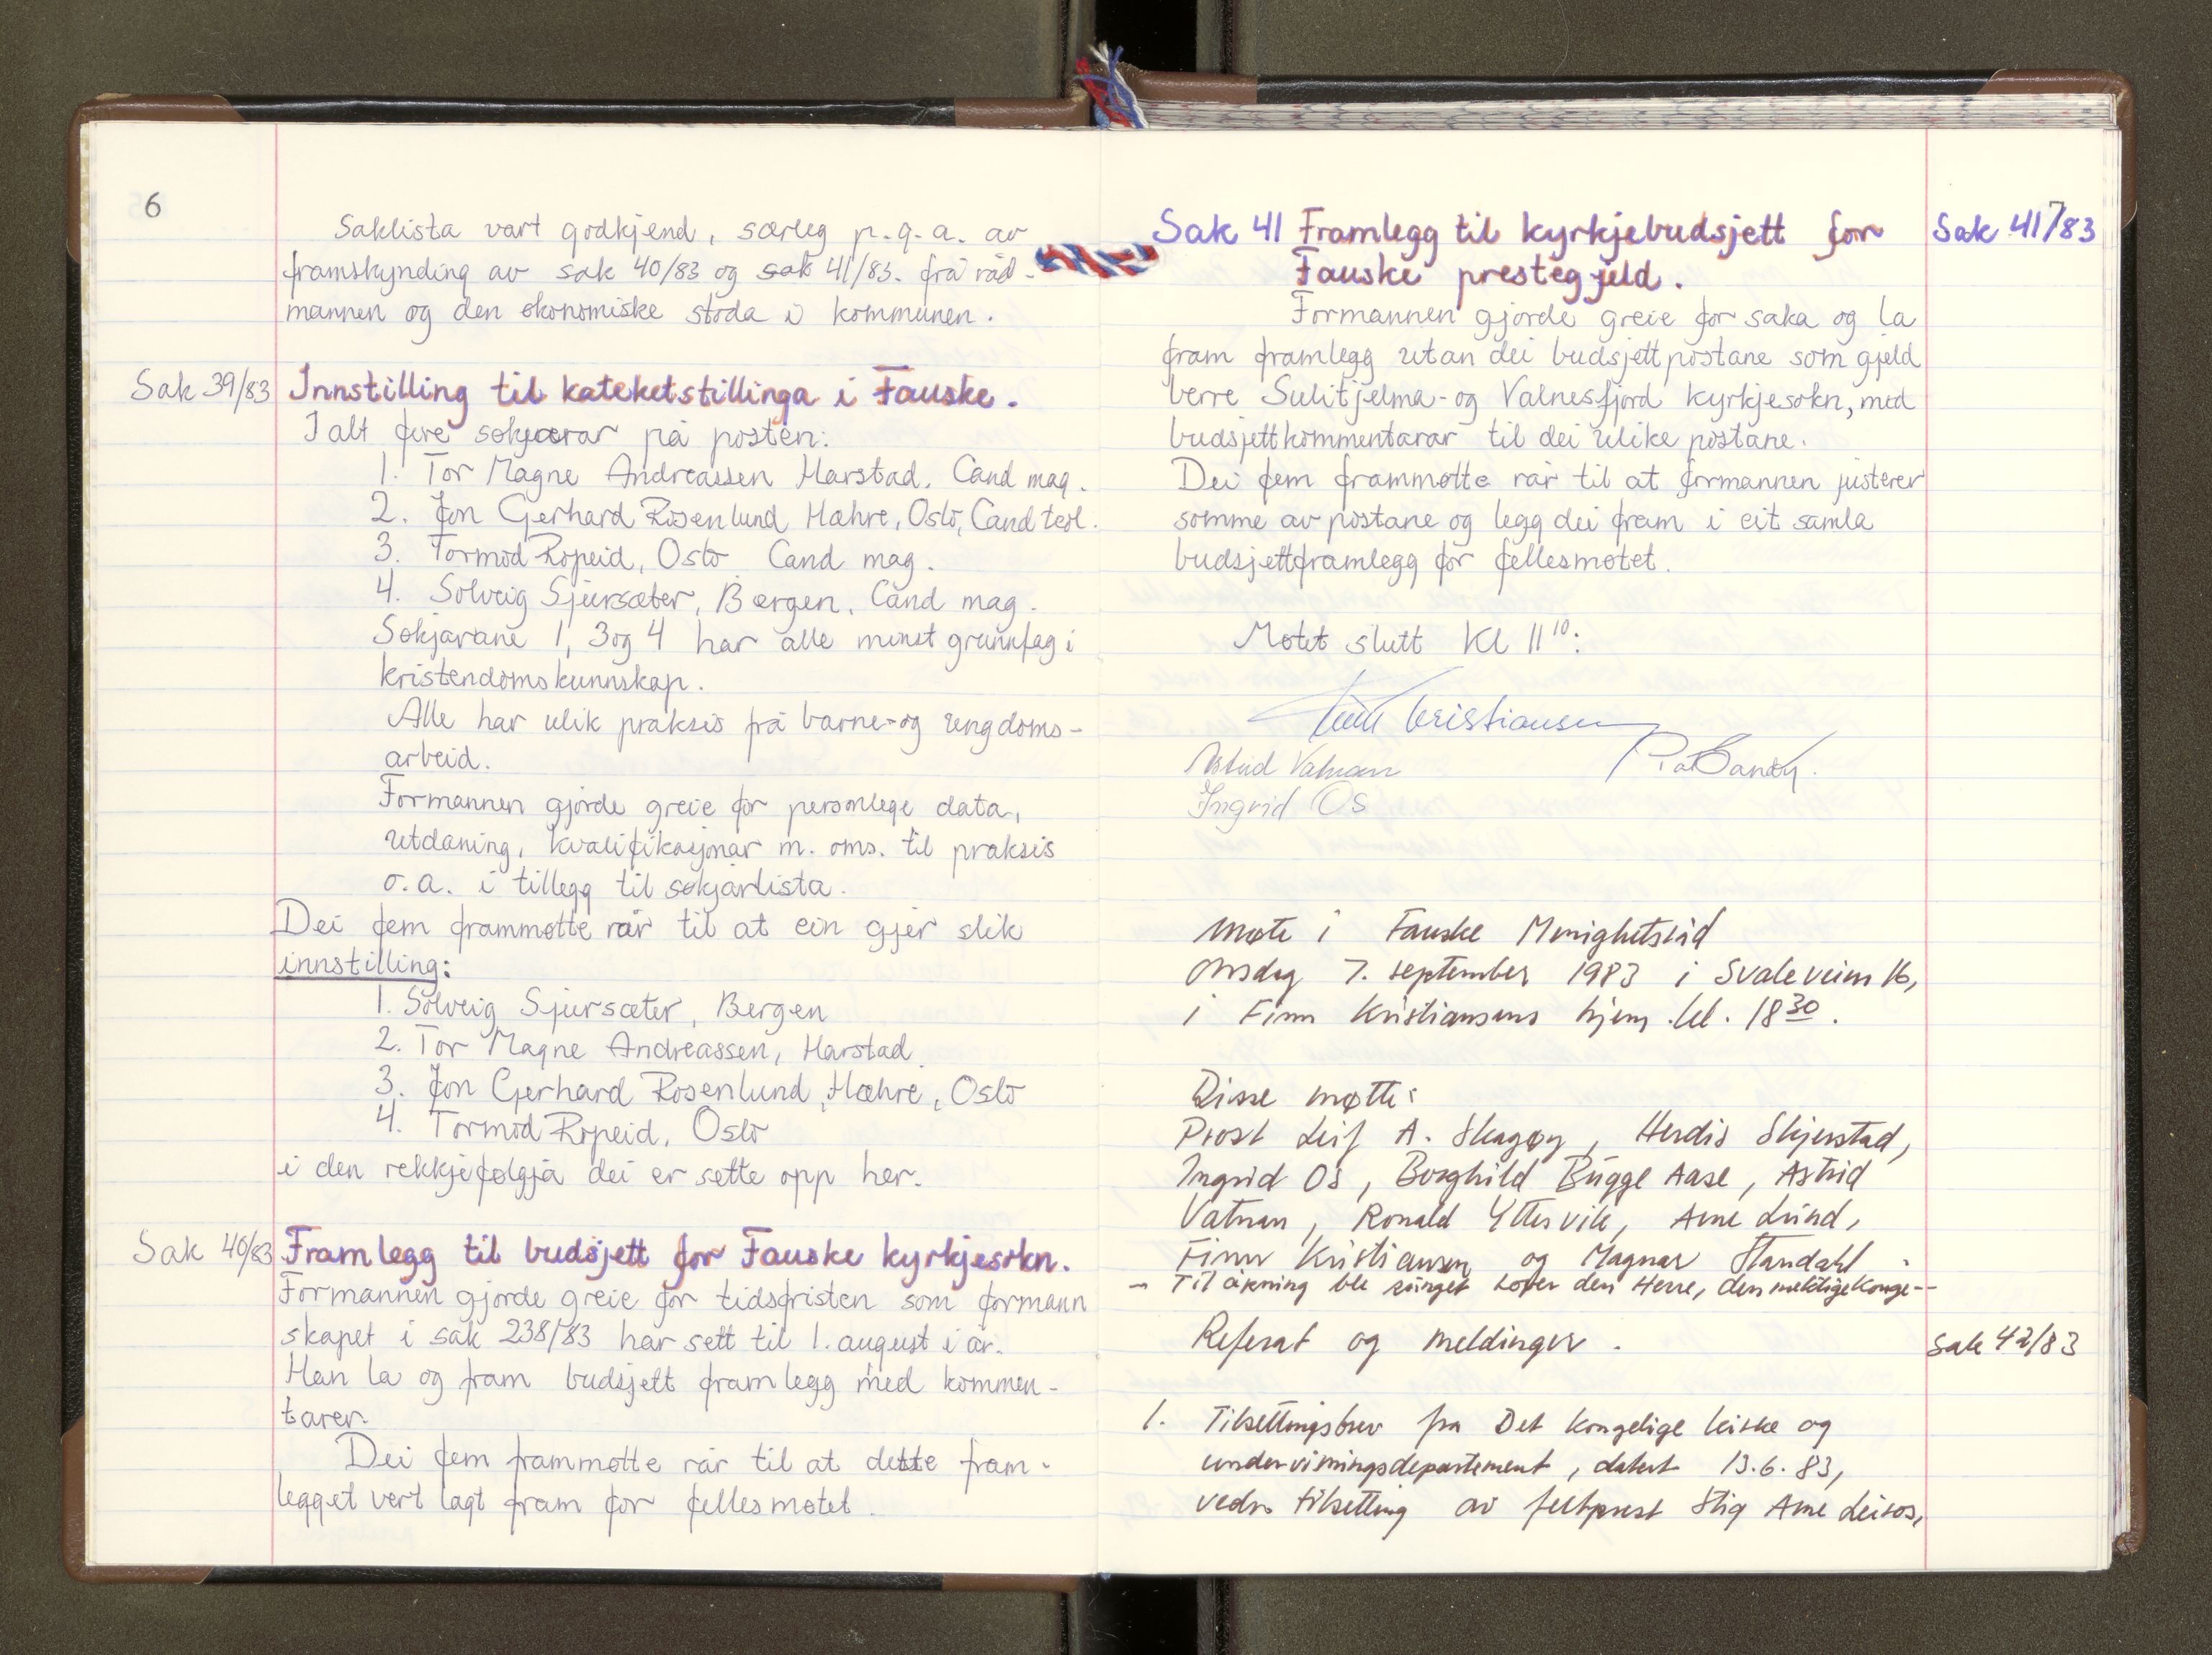 6
Saklista vart godkjend, særleg p.g.a. av
framskynding av sak 40/83 og sak 41/83. frå råd-
mannen og den økonomiske stoda i kommunen.
Sak 39/83 Innstilling til kateketstillinga i Fauske.
I alt fire søkjærar på posten:
1. Tor Magne Andreassen Harstad. Cand mag.
2. Jon Gerhard Rosenlund Hæhre, Oslo, Cand teol.
3. Tormod Ropeid, Oslo Cand mag.
4. Solveig Sjursæter, Bergen. Cand mag.
Søkjarane 1, 3 og 4 har alle minst grunnfag i
kristendomskunnskap.
Alle har ulik praksis frå barne- og ungdoms-
arbeid.
Formannen gjorde greie for personlege data,
utdaning, kvalifikasjonar m. oms. til praksis
o.a. i tillegg til søkjarlista.
Dei fem frammøtte rår til at ein gjer slik
innstilling:
1. Solveig Sjursæter, Bergen
2. Tor Magne Andreassen, Harstad
3. Jon Gerhard Rosenlund, Hæhre, Oslo
4. Tormod Ropeid, Oslo
i den rekkjefølgja dei er sette opp her.
Sak 40/83 Framlegg til budsjett for Fauske kyrkjesokn.
Formannen gjorde greie for tidsfristen som formann
skapet i sak 238/83 har sett til 1. august i år.
Han la og fram budsjett framlegg med kommen-
tarer.
Dei fem frammøtte rår til at dette fram-
legget vert lagt fram for fellesmøtet.
Sak 41 Framlegg til kyrkjebudsjett for Sak 41/83
Fauske prestegjeld.
Formannen gjorde greie for saka og la
fram framlegg utan dei budsjettpostane som gjeld
berre Sulitjelma- og Valnesfjord kyrkjesokn, med
budsjettkommentarar til dei ulike postane.
Dei fem frammøtte rår til at formannen justerer
somme av postane og legg dei fram i eit samla
budsjettframlegg for fellesmøtet.
Møtet slutt Kl 11 10:
Kristiansen
Astrid Vatnan
Ingrid Os
Møte i Fauske Menighetsråd
onsdag 7. september 1983 i Svaleveien 16,
i Finn Kristiansens hjem kl. 18 30.
Disse møtte:
Prost Leif A. Skagøy, Herdis Skjerstad,
Ingrid Os, Borghild Bugge Aase, Astrid
Vatnan, Ronald Yttervik, Arne Lund,
Finn Kristiansen og Magnar Standahl.
- Til åpning ble sunget Lover den Herre, den mektige Konge--
Referat og meldinger. Sak 42/83
1. Tilsettingsbrev fra Det kongelige kirke og
undervisningsdepartement, datert 13.6.83,
vedr. tilsetting av feltprest Stig Arne Leiros,